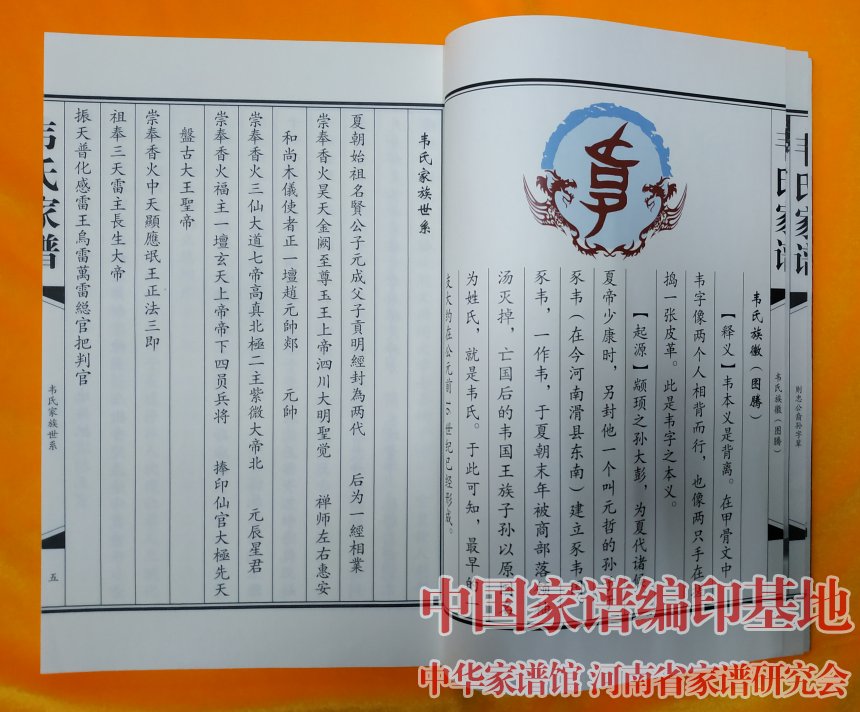 韦氏族徽（图腾）
【释义】韦本义是背离。在甲骨文中
韦字像两个人相背而行，也像两只手在
捣一张皮革。此是韦字之本义。
【起源】颛顼之孙大彭，为夏代诸侯
夏帝少康时，另封他一个叫元哲的孙
豕韦（在今河南滑县东南）建立豕韦
豕韦，一作韦，于夏朝末年被商部落
汤灭掉，亡国后的韦国王族子孙以原
为姓氏，就是韦氏。于此可知，最早的
大约在公元前16世纪已经形成。
韦氏家谱
韦氏族徽（图腾）
韦氏家谱
则忠公裔孙字辈
韦氏家族世系
夏朝始祖名賢公子元成父子貢明經封為两代 后为一經相業
崇奉香火昊天金阙至尊玉王上帝泗川大明聖觉 禅师左右惠安
和尚木儀使者正一壇趙元帥郯 元帥
崇奉香火三仙大道七帝高真北極二主紫微大帝北 元辰星君
崇奉香火福主一壇玄天上帝帝下四员兵将 捧印仙官大極先天
盤古大王聖帝
崇奉香火中天顯應氓王正法三郎
祖奉三天雷主長生大帝
振天普化感雷王鳥雷萬雷総官把判官
韦氏家谱
韦氏家族世系
五
中国家谱编印基地
中华家谱馆 河南省家谱研究会